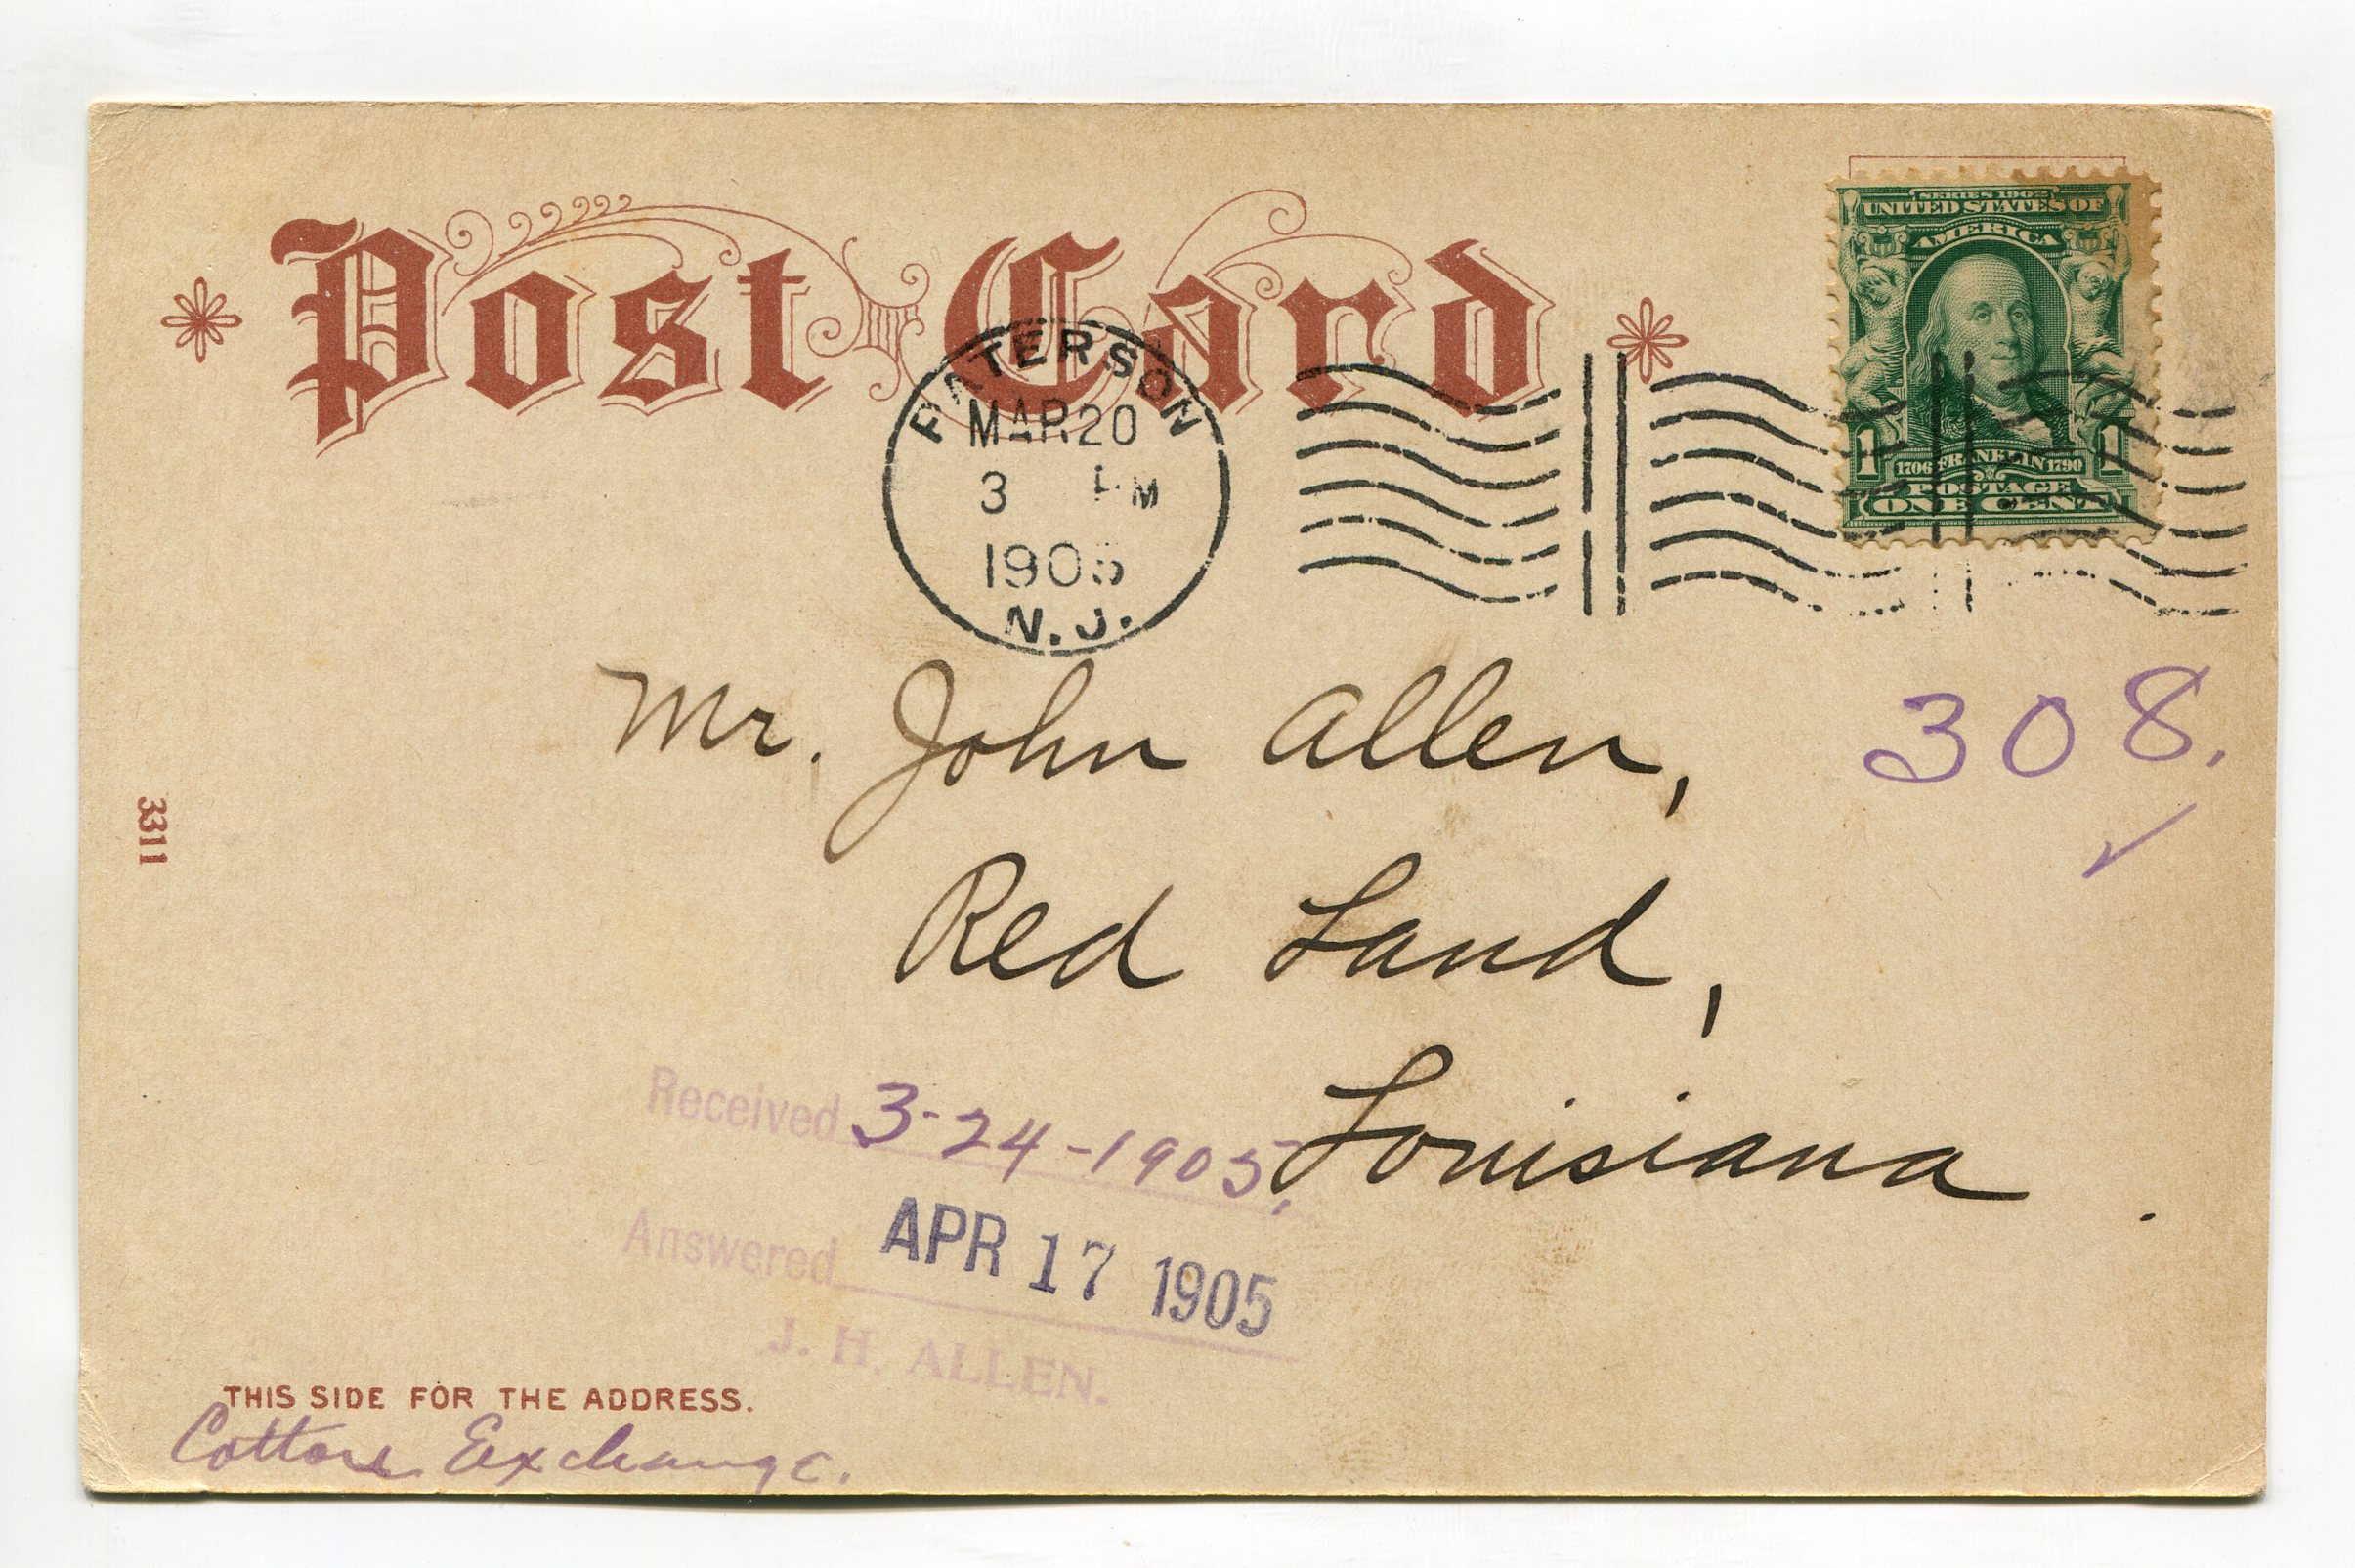 Post Card
SERIES 1902
UNITED STATES OF
AMERICA
1 1
1706 FRANKLIN 1790
POSTAGE
ONE CENT
PATERSON
MAR 20
3 PM
1905
N. J.
Mr. John Allen,
308.
Red Land,
Louisiana.
3311
Received 3-24-1905,
Answered APR 17 1905
J. H. ALLEN.
THIS SIDE FOR THE ADDRESS.
Cotton Exchange.